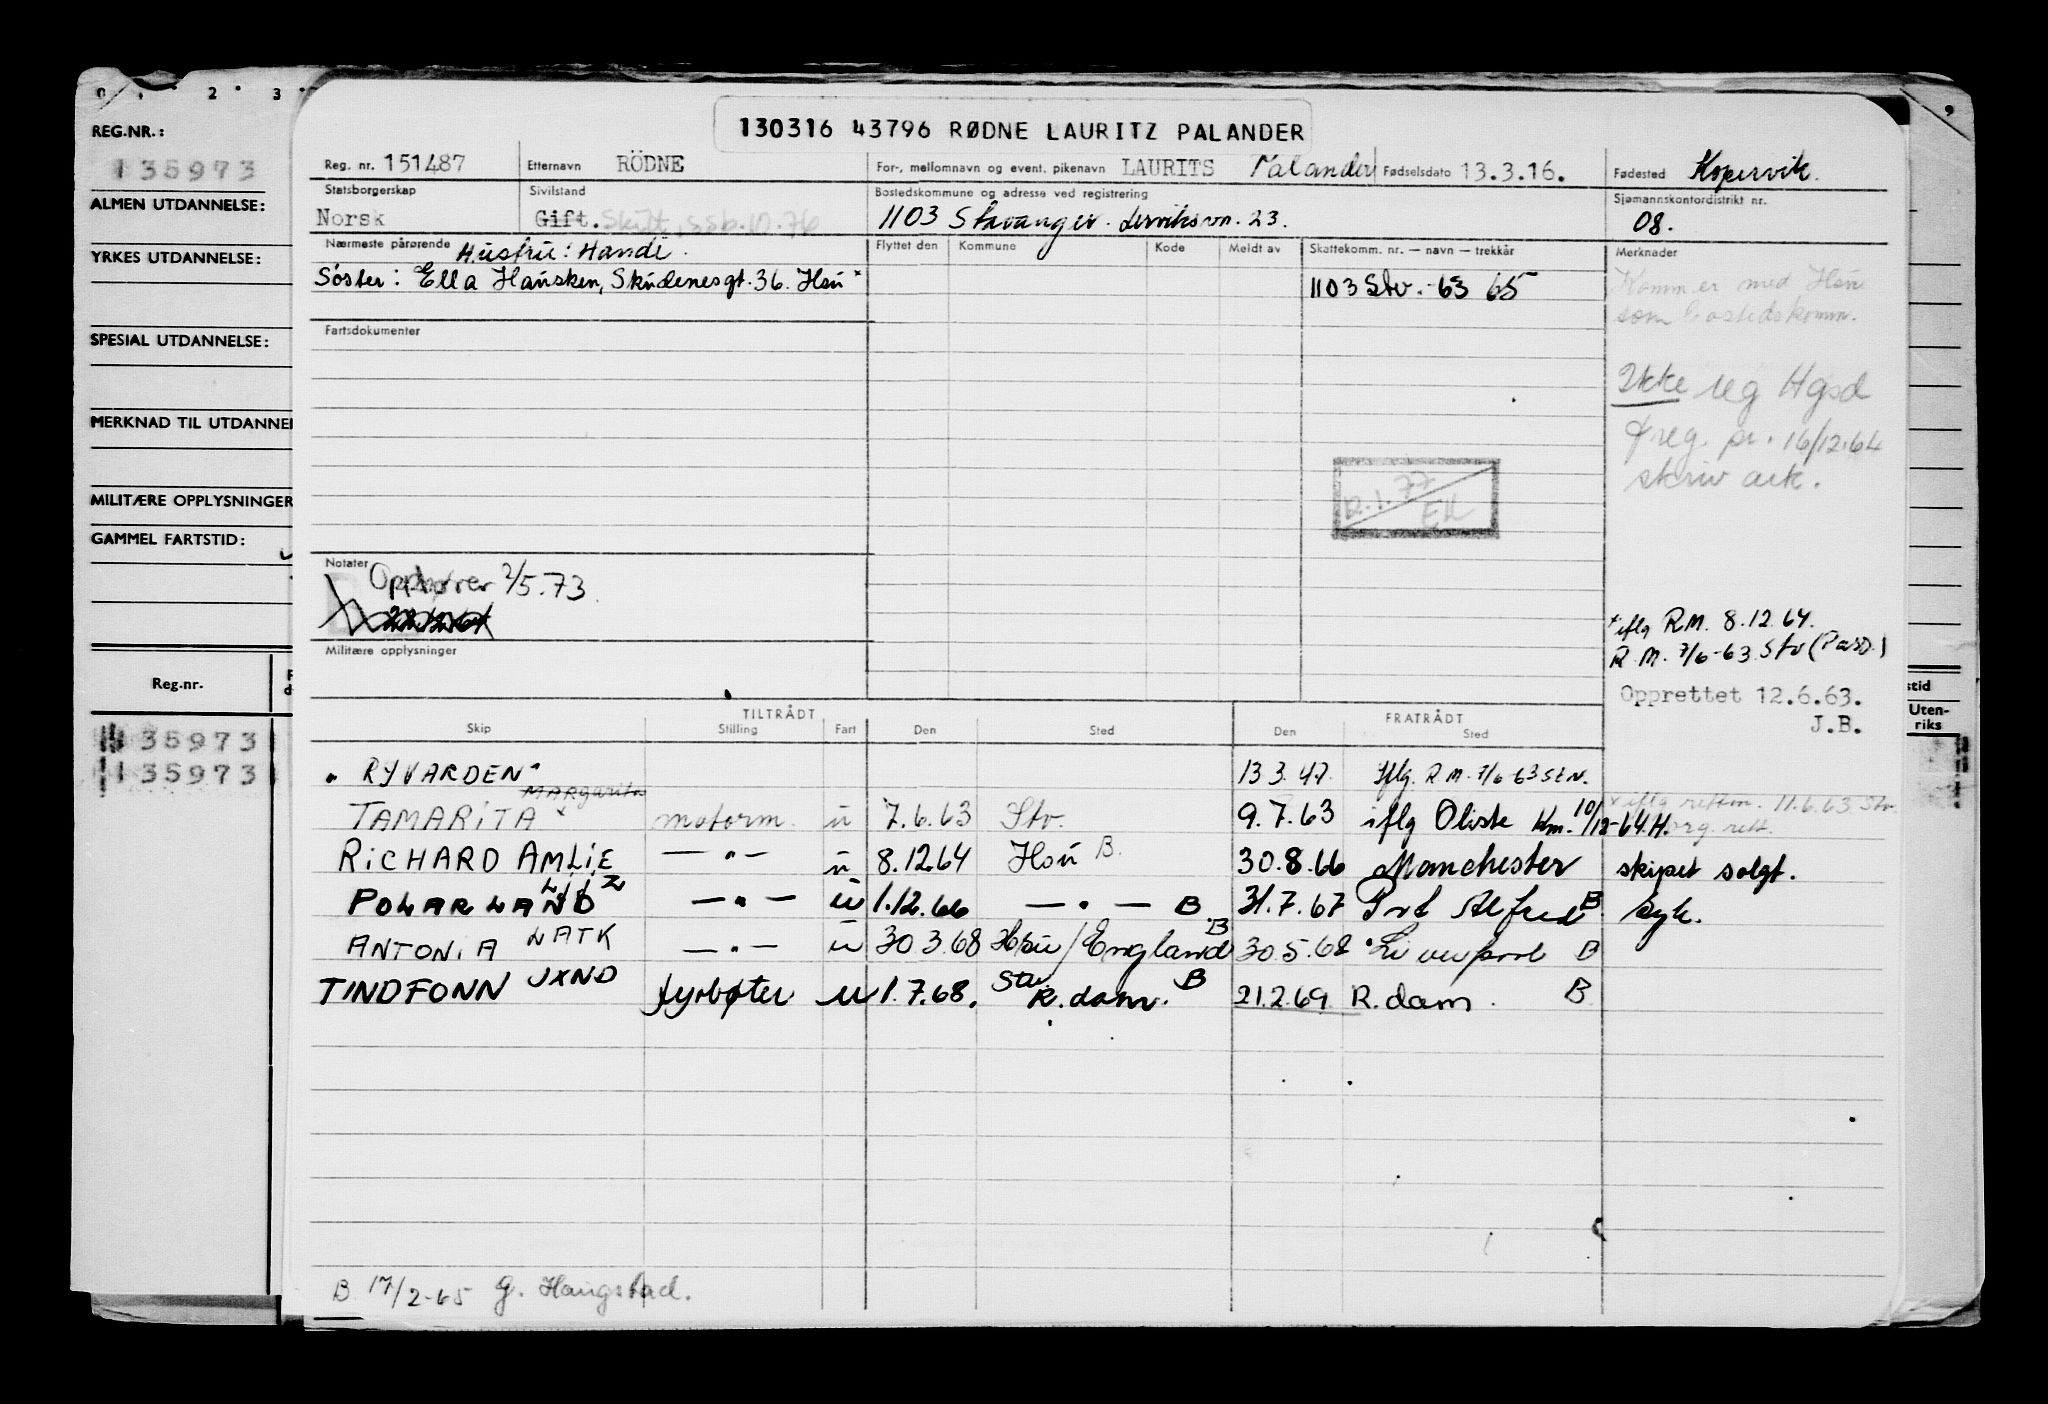 0 1 2 3
9
REG.NR.:
135973
ALMEN UTDANNELSE:
YRKES UTDANNELSE:
SPESIAL UTDANNELSE:
MERKNAD TIL UTDANNEL
MILITÆRE OPPLYSNINGER
GAMMEL FARTSTID:
Reg.nr.
135973
135973
stid
Uten-
riks
130316 43796 RØDNE LAURITZ PALANDER
Reg. nr. 151487 Etternavn RÖDNE For-, mellomnavn og event. pikenavn LAURITS Palander Fødselsdato 13.3.16. Fødested Kopervik.
Statsborgerskap Sivilstand Bostedskommune og adresse ved registrering Sjømannskontordistrikt nr.
Norsk Gift. Skilt, SSB.10.76 1103 Stavanger. 23. 08.
Nærmeste pårørende Hustru: Handi. Flyttet den Kommune Kode Meldt av Skattekomm. nr. — navn — trekkår Merknader
Søster: Ella Hausken, Skudenesgt. 36. Hsu 1103 Stv. -63 65 Kommer med Hsu
som bostedskomm.
Fartsdokumenter
Ikke reg Hgsd
reg. pr. 16/12.64
skriv ark.
12.1.77
EH
Notater Opphører 2/5.73.
Militære opplysninger
iflg R.M. 8.12.64.
R.M. 7/6-63 Stv (Pass.)
Opprettet 12.6.63.
J.B.
TILTRÅDT FRATRÅDT
Skip Stilling Fart Den Sted Den Sted
"RYVARDEN" 13.3.47. Iflg. R.M. 7/6 63 Stv.
Margarita
TAMARITA x motorm. u 7.6.63 Stv. 9.7.63 iflg Oliste Km. 10/12-64.H. x iflg rettm. 11.6.63 Stv
org. rett.
RICHARD AMLIE — " — u 8.12.64 Hsu B. 30.8.66 Manchester skipet solgt.
POLARLAND LIIZ — " — u 1.12.66 — " — B 31.7.67 Port Alfred B. Syk.
ANTONIA LATK — " — u 30.3.68 Hsu/England B 30.5.68 Liverpool B
TINDFONN JXND fyrbøter u 1.7.68. Stv R.dam. B 21.2.69 R.dam. B
B 17/2-65 G. Haugstad.